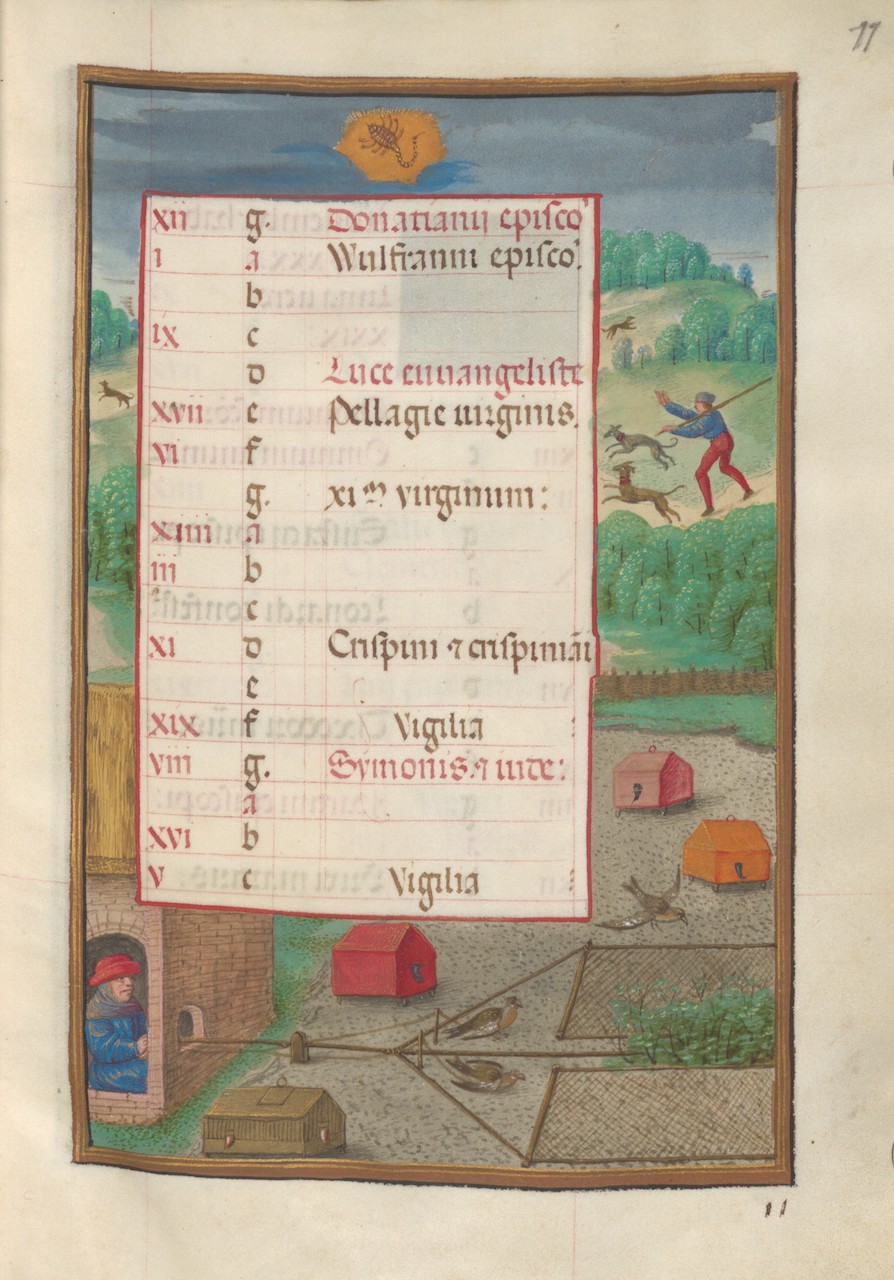 11
XII g. Donatiani episco'
I a Wulfranni episco'.
b
IX c
d Luce euuangeliste
XVII e Pellagie uirginis.
VI f
g. xi.m virginum:
XIIII a
III b
c
XI d Crispini ⁊ crispiniāi
e
XIX f Vigilia
VIII g. Symonis. ⁊ iude:
a
XVI b
V c Vigilia
11